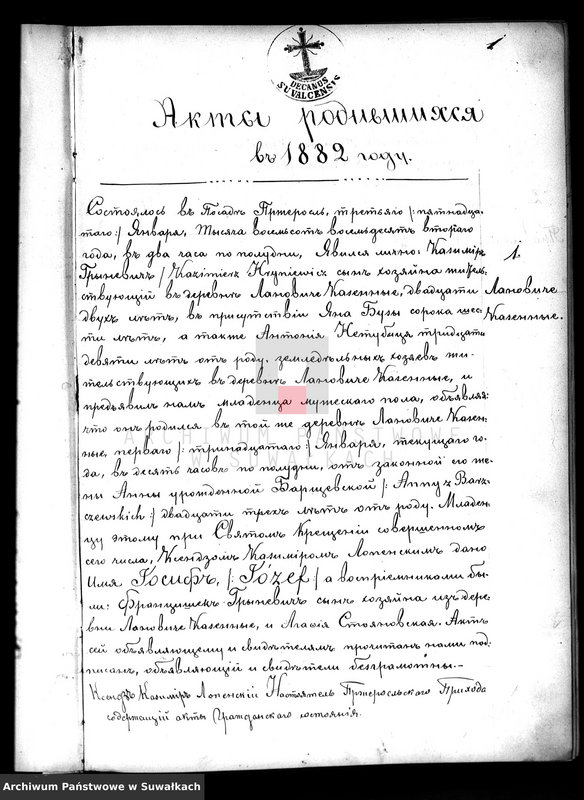 1
DECANUS
SUVALCENSIS
Акты родившихся
въ 1882 году.
Состоялось въ Посадѣ Пржерослѣ, третьяго /: пятнадца-
таго :/ Января, тысяча восемьсотъ восемьдесятъ втораго
года, въ два часа по полудни, Явился лично: Казиміръ
Грыневичъ / Kazimierz Hryniewicz сынъ хозяина житель-
ствующій въ деревнѣ Лановиче Казенные, двадцати
двухъ лѣтъ, въ присутствіи Яна Бузы сорока шес-
ти лѣтъ, а также Антонія Нетубица тридцать
девяти лѣтъ отъ роду, земледѣльныхъ хозяевъ жи-
тельствующихъ въ деревнѣ Лановиче Казенные, и
предъявилъ намъ младенца мужескаго пола, объявляя
что онъ родился въ той же деревнѣ Лановиче Казен-
ные, перваго /: тринадцатаго :/ Января, текущаго го-
да, въ десять часовъ по полудни, отъ законной его же-
ны Анны урожденной Барщевской /: Anny z Barz-
czewskich :/ двадцати трехъ лѣтъ отъ роду. Младен-
цу этому при Святомъ Крещеніи совершенномъ
сего числа, Ксендзомъ Казиміромъ Лопенскимъ дано
Имя Іосифъ, /: Józef :/ а воспріемниками бы-
ли: Францишекъ Грыневичъ сынъ хозяина изъ дере-
вни Лановиче Казенные, и Агафія Стояновская. Актъ
сей объявляющему и свидѣтелямъ прочитанъ нами под-
писанъ, объявляющій и свидѣтели безграмотны. —
Ксендзъ Казиміръ Лопенскій Настоятель Пржерослького Прихода
содержащій акты Гражданского состоянія.
1.
Лановиче
Казенные.
ARCHIWUM PAŃSTWOWE
W SUWAŁKACH
Archiwum Państwowe w Suwałkach